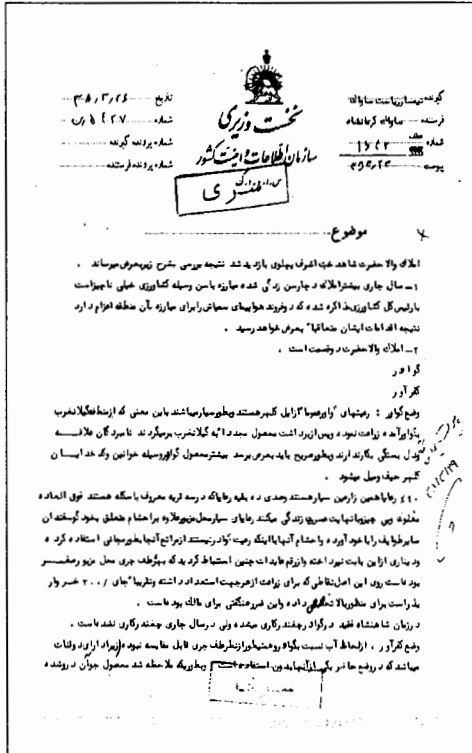 نخست وزیری
سازمان اطلاعات و امنیت کشور
گیرنده تیمسار ریاست ساواک
فرستنده ساواک کرمانشاه
شماره
پیوست
تاریخ ۳۸/۳/۲۶
شماره
شماره پرونده گیرنده
شماره پرونده فرستنده
موضوع
املاک والا حضرت شاهدخت اشرف پهلوی بازدید شد نتیجه بررسی بشرح زیر بعرض میرساند .
۱ـ سال جاری بیشتر املاک دچار سن زدگی شده مبارزه با سن وسیله کشاورزی خیلی ناچیز است
با رئیس کل کشاورزی مذاکره شده که دو فروند هواپیمای سمپاش را برای مبارزه بآن منطقه اعزام دارد
نتیجه اقدامات ایشان متعاقبا" بعرض خواهد رسید .
۲ـ املاک والاحضرت دو قسمت است .
گواور
کفرآور
وضع گواور : رعیتهای گواور عموما" از ایل کلهر هستند وبطور سیار میباشند باین معنی که از منطقه گیلانغرب
بگواور آمده زراعت نموده و پس از برداشت محصول مجددا" به گیلانغرب برمیگردند نامبردگان علاقه
ودل بستگی بکار ندارند وبطور صریح باید بعرض برسد بیشتر محصول گواور وسیله خوانین وکدخدایان
کلهر حیف ومیل میشود .
رعایا همین زارعین سیار هستند وعده ده بقیه رعایا که در سه قریه معروف باسکله هستند فوق العاده
مفلوک وبی چیز وبانهایت عسرت زندگی میکنند رعایای سیار محل مزبور علاوه بر احشام متعلق بخود گوسفندان
سایر طوایف را با خود آورده واحشام آنها با اینکه رعیت گواور نیستند از مراتع آنجا بطور مجانی استفاده کرده
ودیناری از این بابت نپرداخته واز رقم عایدات چنین استنباط گردید که بهره طرف جری محل مزبور صفر
بوده است روی این اصل نقاطی که برای زراعت از هر جهت استعداد داشته وتقریبا" جای ۲۰۰/ خروار
بذر است برای منظور بالا تخصیص داده واین ضرر هنگفتی برای مالک بوده است .
در زمان شاهنشاه فقید در گواور چغندرکاری میشده ولی در سال جاری چغندرکاری نشده است .
وضع کفرآور . از لحاظ آب نسبت بگواور وهمینطور از نظر طرف جری قابل مقایسه نبوده زیرا دارای دو قنات
میباشد که در وضع حاضر یکی از آنها بدون استفاده است وبطوریکه ملاحظه شد محصول جو آن درو شده